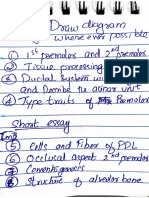 Draw diagram
where ever possible
① 1st premolar and 2nd premolar
② Tissue processing
③ Ductal system
and
④ Type traits of Premolars
Short essay
Imp
⑤ Cells and Fiber of PDL
⑥ Occlusal aspect 2nd premolar
⑦ Cementogenesis
⑧ Structure of alveolar bone